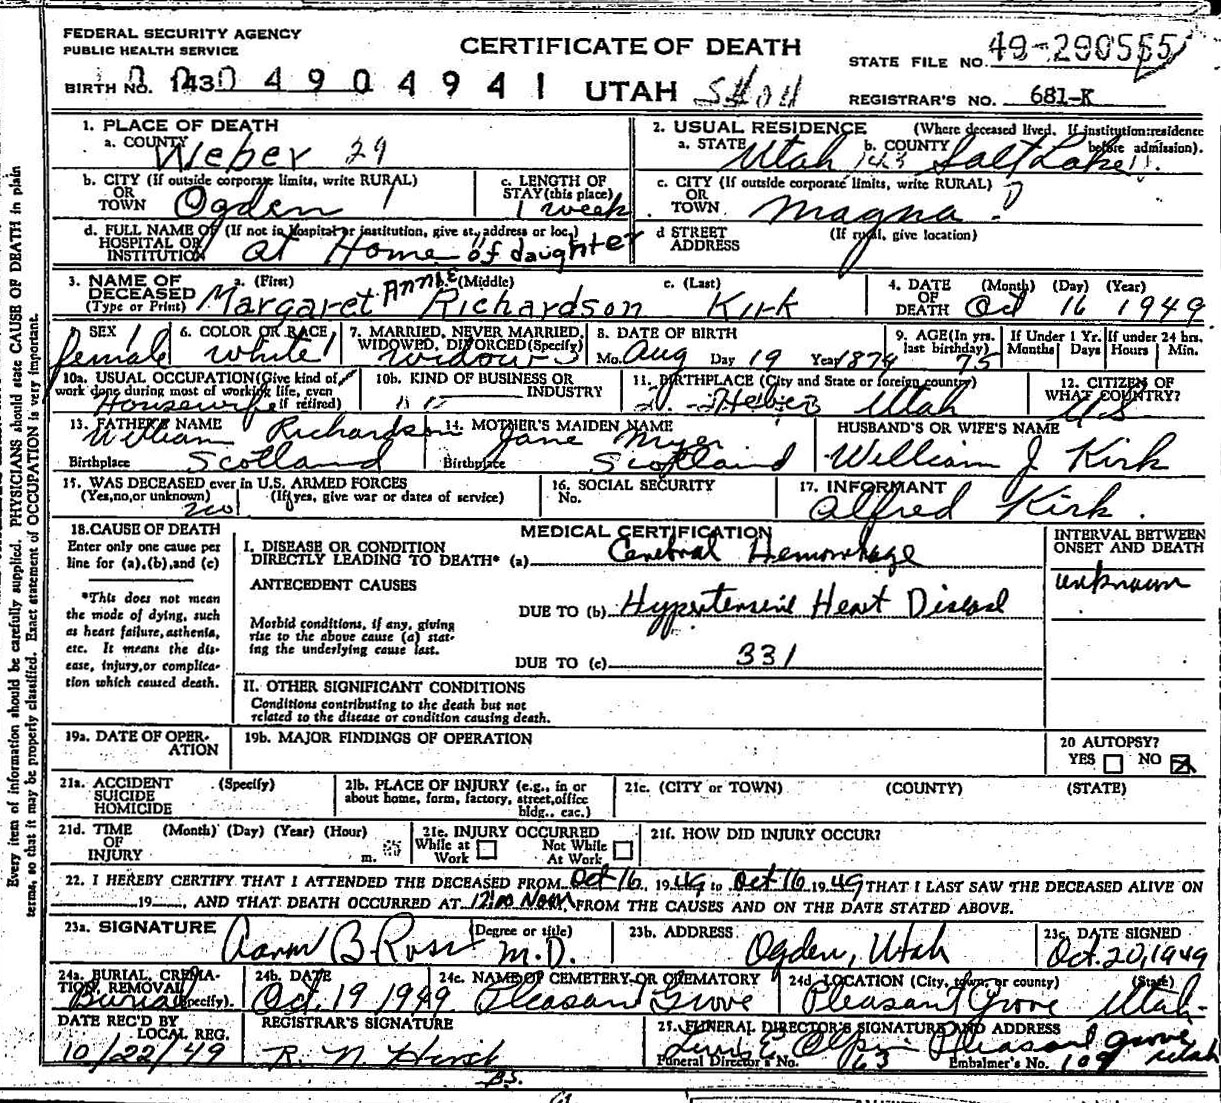 FEDERAL SECURITY AGENCY
PUBLIC HEALTH SERVICE
CERTIFICATE OF DEATH
STATE FILE NO. 49-290555
BIRTH NO. 1430 4904941 UTAH
REGISTRAR'S NO. 681-K
1. PLACE OF DEATH
a. COUNTY Weber 29
2. USUAL RESIDENCE (Where deceased lived. If institution: residence before admission).
a. STATE Utah 143 b. COUNTY Salt Lake
b. CITY (If outside corporate limits, write RURAL)
OR
TOWN Ogden 1
c. LENGTH OF
STAY (this place)
1 week
c. CITY (If outside corporate limits, write RURAL)
OR
TOWN Magna
d. FULL NAME OF (If not in hospital or institution, give st., address or loc.)
HOSPITAL OR
INSTITUTION at Home of daughter
d STREET (If rural, give location)
ADDRESS
3. NAME OF a. (First) b. (Middle) c. (Last)
DECEASED
(Type or Print) Margaret Annie Richardson Kirk
4. DATE (Month) (Day) (Year)
OF
DEATH Oct 16 1949
5 SEX female
6. COLOR OR RACE white
7. MARRIED, NEVER MARRIED, WIDOWED, DIVORCED (Specify)
Widow
8. DATE OF BIRTH
Mo. Aug Day 19 Year 1874
9. AGE (In yrs. last birthday) 75
If Under 1 Yr. Months Days
If under 24 hrs. Hours Min.
10a. USUAL OCCUPATION (Give kind of work done during most of working life, even if retired)
Housewife
10b. KIND OF BUSINESS OR INDUSTRY
11. BIRTHPLACE (City and State or foreign country)
Heber Utah
12. CITIZEN OF WHAT COUNTRY?
U.S.
13. FATHER'S NAME
William Richardson
Birthplace Scotland
14. MOTHER'S MAIDEN NAME
Jane Myer
Birthplace Scotland
HUSBAND'S OR WIFE'S NAME
William J Kirk
15. WAS DECEASED ever in U.S. ARMED FORCES
(Yes, no, or unknown) (If yes, give war or dates of service)
no
16. SOCIAL SECURITY
No.
17. INFORMANT
Alfred Kirk.
18. CAUSE OF DEATH
Enter only one cause per
line for (a), (b), and (c)
*This does not mean
the mode of dying, such
as heart failure, asthenia,
etc. It means the dis-
ease, injury, or complica-
tion which caused death.
MEDICAL CERTIFICATION
I. DISEASE OR CONDITION
DIRECTLY LEADING TO DEATH* (a) Cerebral Hemorrhage
ANTECEDENT CAUSES
DUE TO (b) Hypertensive Heart Disease
Morbid conditions, if any, giving
rise to the above cause (a) stat-
ing the underlying cause last.
DUE TO (c) 331
II. OTHER SIGNIFICANT CONDITIONS
Conditions contributing to the death but not
related to the disease or condition causing death.
INTERVAL BETWEEN
ONSET AND DEATH
unknown
19a. DATE OF OPER-
ATION
19b. MAJOR FINDINGS OF OPERATION
20 AUTOPSY?
YES NO
21a. ACCIDENT (Specify)
SUICIDE
HOMICIDE
21b. PLACE OF INJURY (e.g., in or
about home, form, factory, street, office
bldg., eac.)
21c. (CITY or TOWN) (COUNTY) (STATE)
21d. TIME (Month) (Day) (Year) (Hour)
OF
INJURY m.
21e. INJURY OCCURRED
While at Work Not While At Work
21f. HOW DID INJURY OCCUR?
22. I HEREBY CERTIFY THAT I ATTENDED THE DECEASED FROM Oct 16, 1949 to Oct 16 1949 THAT I LAST SAW THE DECEASED ALIVE ON
19 , AND THAT DEATH OCCURRED AT 12:00 Noon, FROM THE CAUSES AND ON THE DATE STATED ABOVE.
23a. SIGNATURE (Degree or title)
Aaron B. Ross M.D.
23b. ADDRESS
Ogden, Utah
23c. DATE SIGNED
Oct. 20, 1949
24a. BURIAL, CREMA-
TION, REMOVAL
(Specify). Burial
24b. DATE
Oct. 19 1949
24c. NAME OF CEMETERY OR CREMATORY
Pleasant Grove
24d. LOCATION (City, town, or county) (State)
Pleasant Grove Utah
DATE REC'D BY
LOCAL REG.
10/22/49
REGISTRAR'S SIGNATURE
R. N. Hirst
25. FUNERAL DIRECTOR'S SIGNATURE AND ADDRESS
Olpin Pleasant Grove Utah
Funeral Director's No. 163 Embalmer's No. 109
Every item of information should be carefully supplied. PHYSICIANS should state CAUSE OF DEATH in plain
terms, so that it may be properly classified. Exact statement of OCCUPATION is very important.